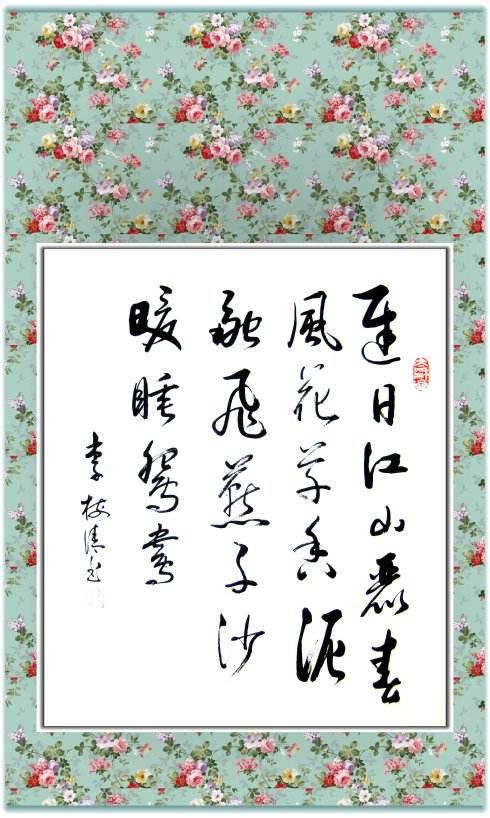 遲日江山麗春
風花草香泥
融飛燕子沙
暖睡鴛鴦
李